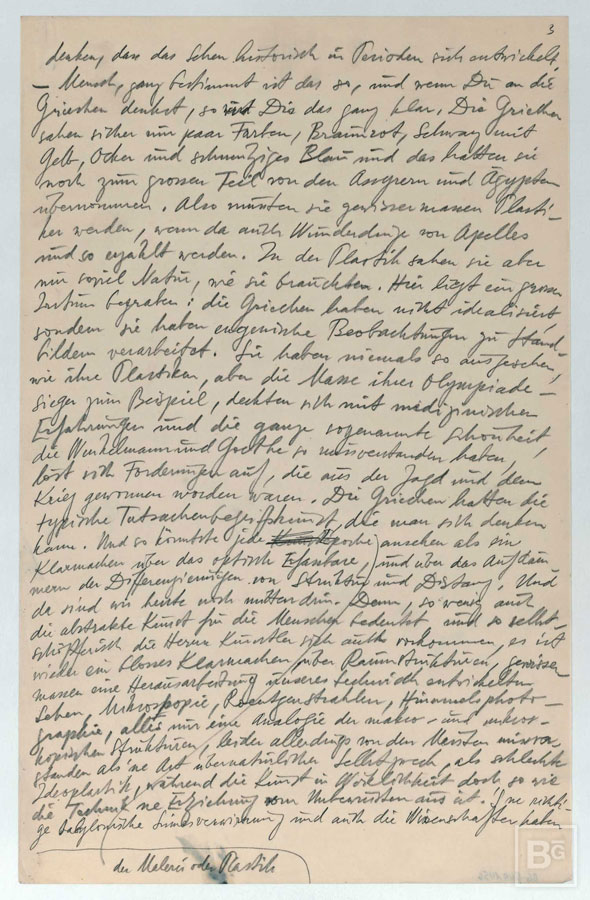 3
denken, dass das Sehen historisch in Perioden sich entwickelt.
– Mensch, ganz bestimmt ist das so, und wenn Du an die
Griechen denkst, so wird Dir das ganz klar. Die Griechen
sahen sicher nur paar Farben, Braunrot, Schwarz mit
Gelb, Ocker und schmutziges Blau und das hatten sie
noch zum grossen Teil von den Assyrern und Ägyptern
übernommen. Also mussten sie gewissermassen Plasti-
ker werden, wenn da auch Wunderdinge von Apelles
und so erzählt werden. In der Plastik sahen sie aber
nur soviel Natur, wie sie brauchten. Hier liegt ein grosser
Irrtum begraben: die Griechen haben nicht idealisiert,
sondern sie haben eugenische Beobachtungen zu Stand-
bildern verarbeitet. Sie haben niemals so ausgesehen,
wie ihre Plastiken, aber die Masse ihrer Olympiade-
sieger zum Beispiel, deckten sich mit medizinischen
Erfahrungen und die ganze sogenannte Schönheit,
die Winkelmann und Goethe so missverstanden haben,
löst sich Forderungen auf, die aus der Jagd und dem
Krieg gewonnen worden waren. Die Griechen hatten die
typische Tatsachenbegriffskunst, die man sich denken
kann. Und so könntest jede poche) ansehen als ein
Klarmachen über das optisch Erfassbare, und über das Aufdäm-
mern der Differenzierungen von Struktur und Distanz. Und
da sind wir heute noch mitten drin. Denn, so wenig auch
die abstrakte Kunst für die Menschen bedeutet und so selbst-
schöpferisch die Herren Künstler sich auch vorkommen, es ist
wieder ein blosses Klarmachen über Raumstrukturen, gewisser
massen eine Herausarbeitung unseres technisch entwickelten
Sehen, Mikroskopie, Roentgenstrahlen, Himmelsphoto-
graphie, alles nur eine Analogie der makro- und mikros-
kopischen Strukturen, leider allerdings von den Meisten missver-
standen als 'ne Art übernatürlicher Selbstzweck, als schlechte
Ideoplastik, während die Kunst in Wirklichkeit doch so wie
die Technik 'ne Erziehung vom Unbewussten aus ist. 'ne richti-
ge babylonische Sinnesverwirrung und auch die Wissenschafter haben
der Malerei oder Plastik
BG